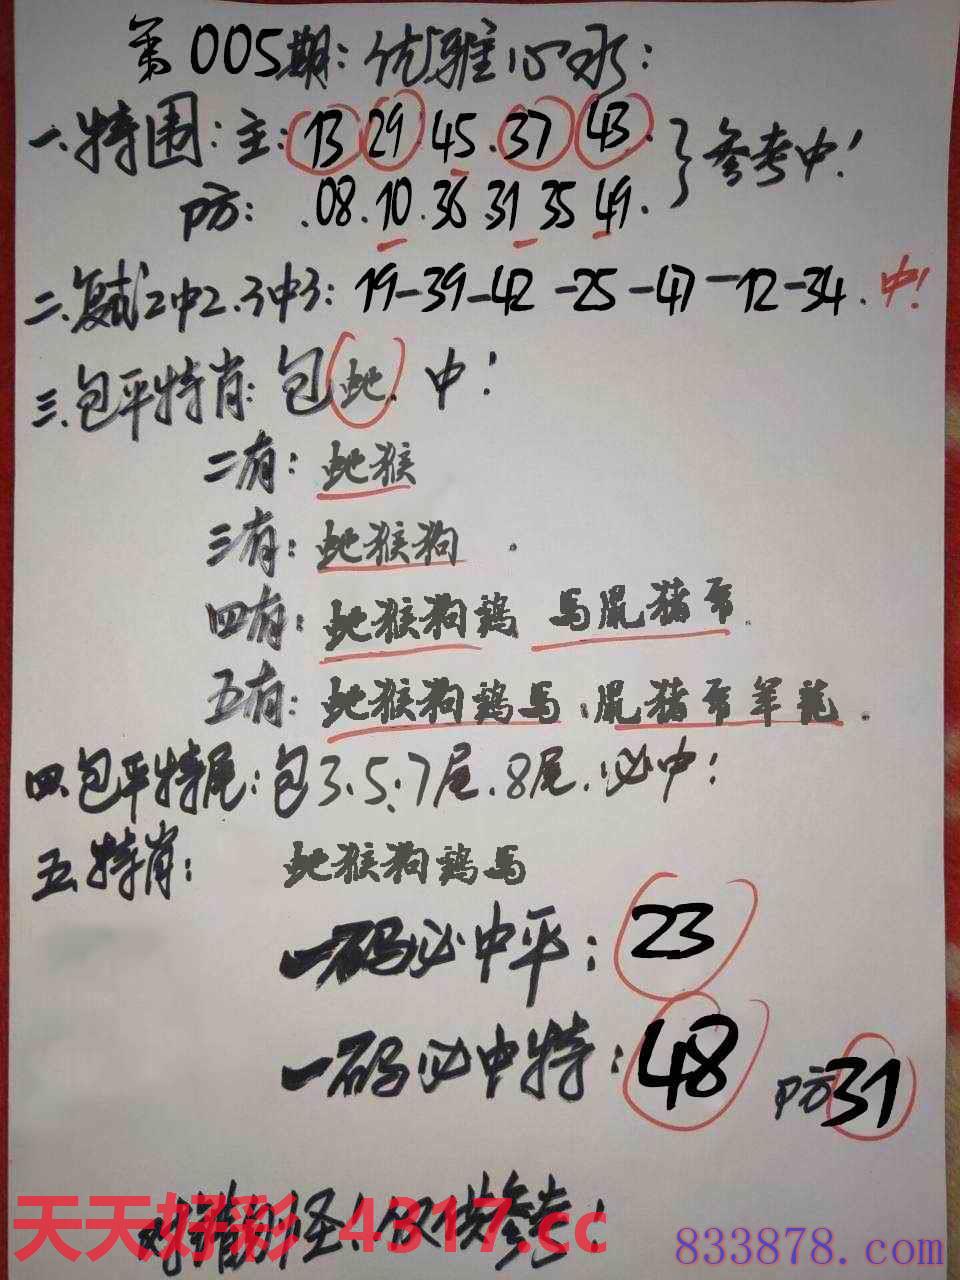 第005期:优雅心水:
一.特围:主:13 29.45.37 43.}参考中!
防:.08.10.36.31 35 49.
二.复式2中2.3中3:19-39-42-25-47-12-34.中!
三.包平特肖:包蛇.中!
二有:蛇猴
三有:蛇猴狗.
四有:蛇猴狗鸡 马鼠猪
五有:蛇猴狗鸡马.鼠猪 羊龙.
四.包平特尾:包3.5.7尾.8尾.必中!
五.特肖:蛇猴狗鸡马
一码必中平:23
一码必中特:48 防31
对错勿怪!仅供参考!
天天好彩 4317.cc
833878.com